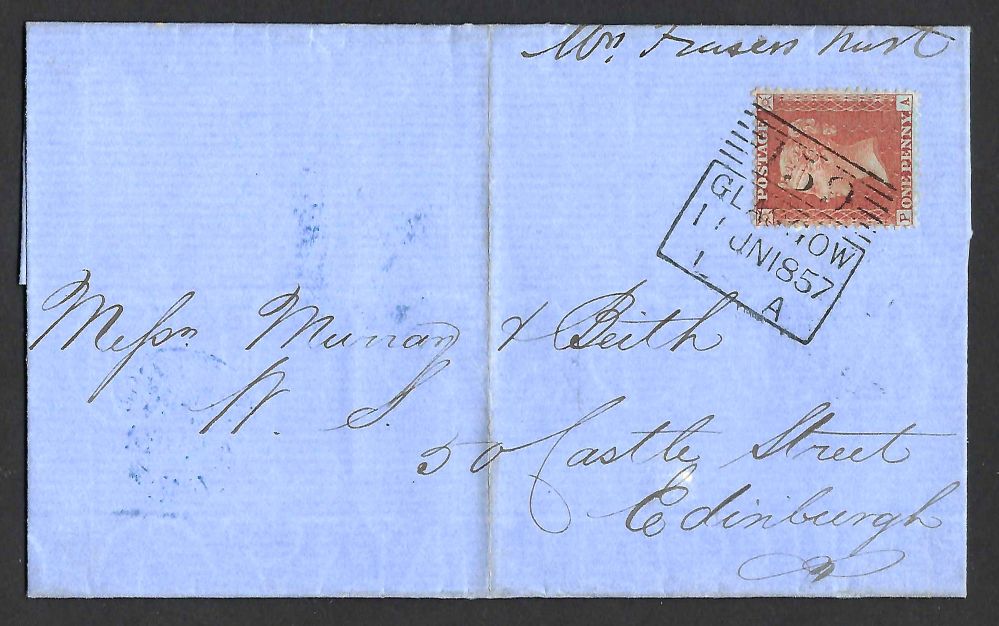 Mrs. Frasers Trust
POSTAGE
ONE PENNY
A
P
159
GLASGOW
11 JN 1857
A
Messrs. Murray & Beith
W. S.
50 Castle Street
Edinburgh